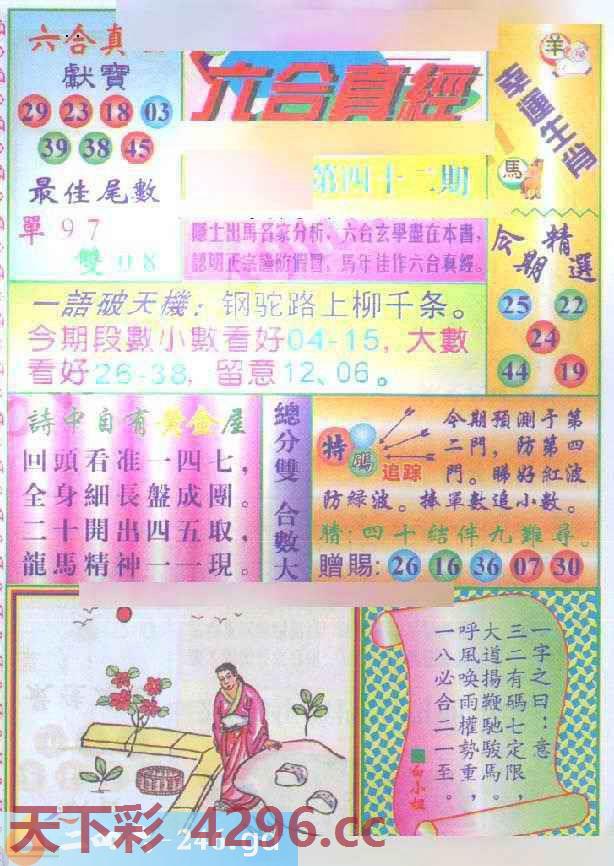 六合真
獻寶
29 23 18 03
39 38 45
最佳尾數
單 9 7
雙 0 8
六合真經
第四十二期
隱士出馬名家分析,六合玄學盡在本書,
認明正宗謹防假冒,馬年佳作六合真經。
羊
幸運生肖
馬
今期精選
25 22
24
44 19
一語破天機:钢驼路上柳千条。
今期段數小數看好04-15,大數
看好26-38,留意12、06。
詩中自有黃金屋
回頭看准一四七,
全身細長盤成團。
二十開出四五取,
龍馬精神一一現。
總分雙 合數大
特碼
追踪
今期預測于第
二門,防第四
門。睇好紅波
防綠波。捧單數追小數。
猜:四十结伴九難尋。
贈賜:26 16 36 07 30
一字之曰:意
三二有碼七定限,
大道揚鞭馳駿馬。
呼風喚雨權勢重,
一八必合二一至。
白小姐
天下彩 4296.cc
246.gd